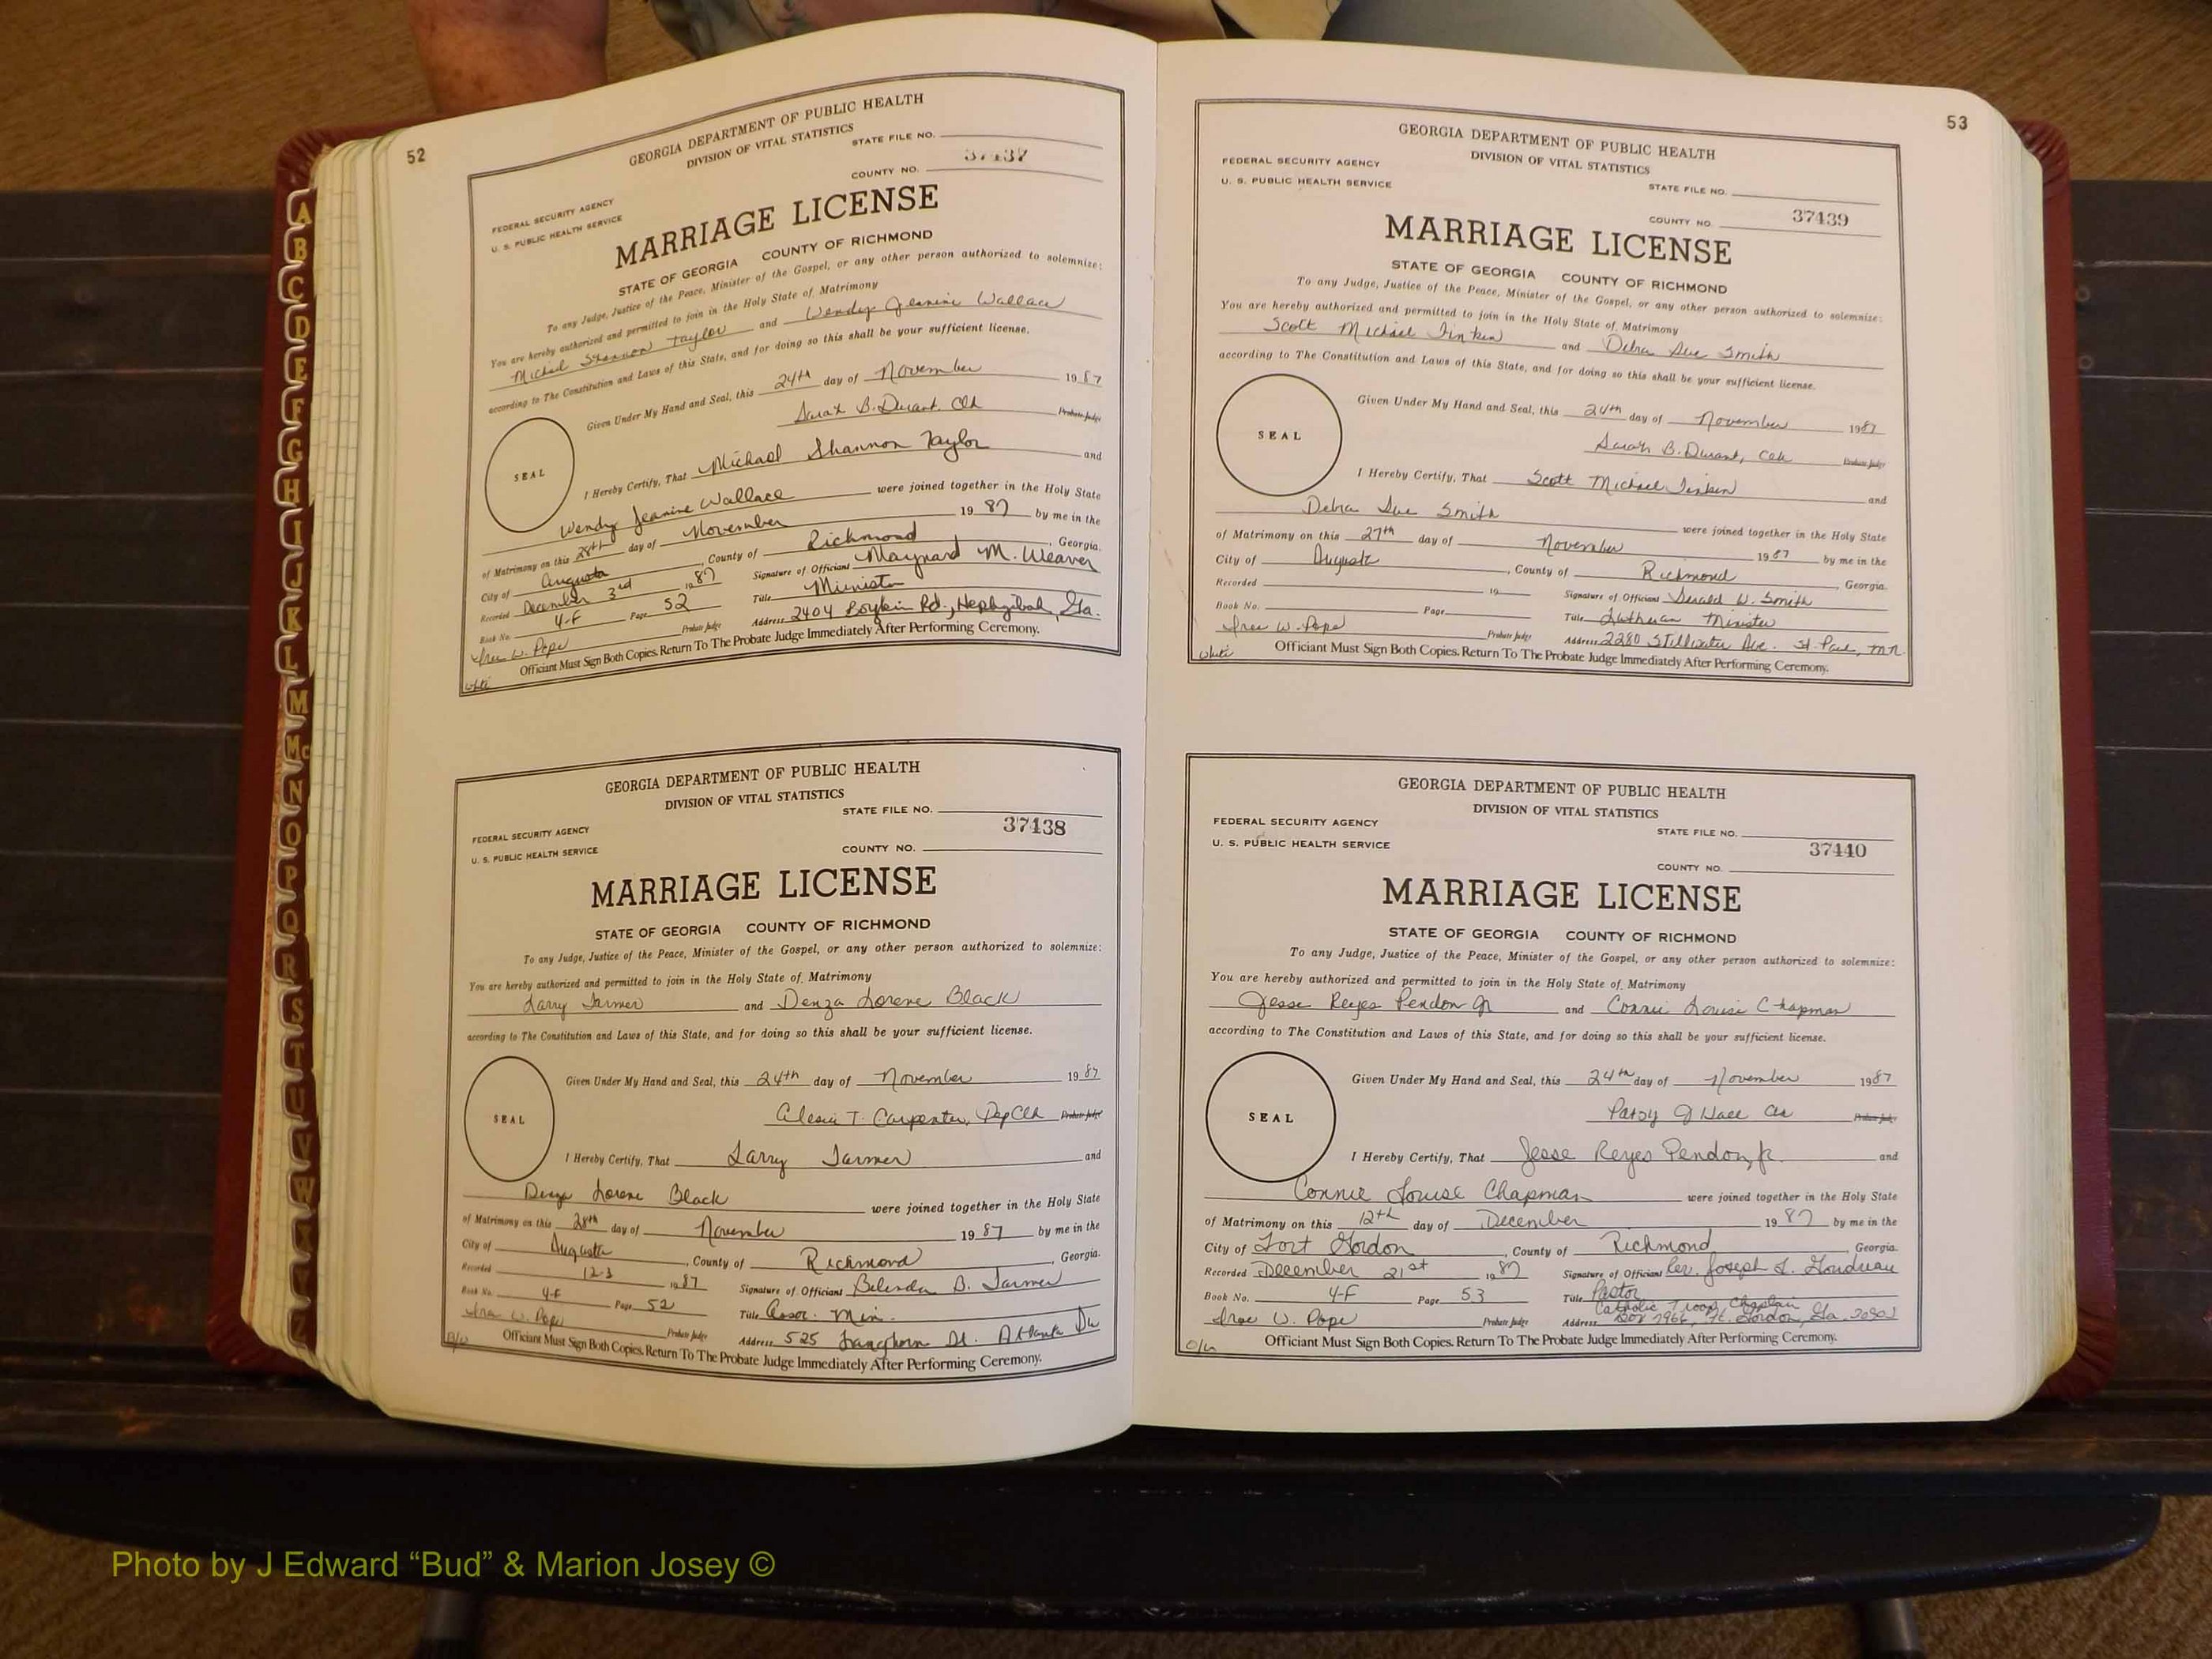 52
GEORGIA DEPARTMENT OF PUBLIC HEALTH
DIVISION OF VITAL STATISTICS
STATE FILE NO.
37437
COUNTY NO.
FEDERAL SECURITY AGENCY
U. S. PUBLIC HEALTH SERVICE
MARRIAGE LICENSE
STATE OF GEORGIA COUNTY OF RICHMOND
To any Judge, Justice of the Peace, Minister of the Gospel, or any other person authorized to solemnize:
You are hereby authorized and permitted to join in the Holy State of Matrimony
Michael Shannon Taylor and Wendy Jeanine Wallace
according to The Constitution and Laws of this State, and for doing so this shall be your sufficient license.
Given Under My Hand and Seal, this 24th day of November 1987
Sarah B. Durant, Clk Probate Judge
SEAL
I Hereby Certify, That Michael Shannon Taylor and
Wendy Jeanine Wallace were joined together in the Holy State
of Matrimony on this 28th day of November 1987 by me in the
City of Augusta, County of Richmond, Georgia.
Recorded December 3rd 1987 Signature of Officiant Maynard M. Weaver
Book No. 4-F Page 52 Title Minister
Probate Judge Address 2404 Boykin Rd., Hephzibah, Ga.
W. Pope
Officiant Must Sign Both Copies. Return To The Probate Judge Immediately After Performing Ceremony.
White
GEORGIA DEPARTMENT OF PUBLIC HEALTH
DIVISION OF VITAL STATISTICS
STATE FILE NO.
37438
FEDERAL SECURITY AGENCY
U. S. PUBLIC HEALTH SERVICE
COUNTY NO.
MARRIAGE LICENSE
STATE OF GEORGIA COUNTY OF RICHMOND
To any Judge, Justice of the Peace, Minister of the Gospel, or any other person authorized to solemnize:
You are hereby authorized and permitted to join in the Holy State of Matrimony
Larry and Denza Lorene Black
according to The Constitution and Laws of this State, and for doing so this shall be your sufficient license.
Given Under My Hand and Seal, this 24th day of November 1987
T. Carpenter, Dep Clk Probate Judge
SEAL
I Hereby Certify, That Larry and
Lorene Black were joined together in the Holy State
of Matrimony on this 28th day of November 1987 by me in the
City of Augusta, County of Richmond, Georgia.
Recorded 12-3 1987 Signature of Officiant Belinda B.
Book No. 4-F Page 52 Title Assoc. Min.
W. Pope Probate Judge Address 525 Langhorn St. Atlanta
Officiant Must Sign Both Copies. Return To The Probate Judge Immediately After Performing Ceremony.
53
GEORGIA DEPARTMENT OF PUBLIC HEALTH
DIVISION OF VITAL STATISTICS
FEDERAL SECURITY AGENCY
U. S. PUBLIC HEALTH SERVICE
STATE FILE NO.
COUNTY NO. 37439
MARRIAGE LICENSE
STATE OF GEORGIA COUNTY OF RICHMOND
To any Judge, Justice of the Peace, Minister of the Gospel, or any other person authorized to solemnize:
You are hereby authorized and permitted to join in the Holy State of Matrimony
Scott Michael and Debra Sue Smith
according to The Constitution and Laws of this State, and for doing so this shall be your sufficient license.
Given Under My Hand and Seal, this 24th day of November 1987
Sarah B. Durant, Clk Probate Judge
SEAL
I Hereby Certify, That Scott Michael and
Debra Sue Smith were joined together in the Holy State
of Matrimony on this 27th day of November 1987 by me in the
City of Augusta, County of Richmond, Georgia.
Recorded 19 Signature of Officiant Gerald W. Smith
Book No. Page Title Lutheran Minister
W. Pope Probate Judge Address 2280 Stillwater Ave. St. Paul, Mn.
White
Officiant Must Sign Both Copies. Return To The Probate Judge Immediately After Performing Ceremony.
GEORGIA DEPARTMENT OF PUBLIC HEALTH
DIVISION OF VITAL STATISTICS
FEDERAL SECURITY AGENCY
U. S. PUBLIC HEALTH SERVICE
STATE FILE NO.
37440
COUNTY NO.
MARRIAGE LICENSE
STATE OF GEORGIA COUNTY OF RICHMOND
To any Judge, Justice of the Peace, Minister of the Gospel, or any other person authorized to solemnize:
You are hereby authorized and permitted to join in the Holy State of Matrimony
Jesse Reyes Pendon Jr and Connie Louise Chapman
according to The Constitution and Laws of this State, and for doing so this shall be your sufficient license.
Given Under My Hand and Seal, this 24th day of November 1987
Patsy J Hall Clk Probate Judge
SEAL
I Hereby Certify, That Jesse Reyes Pendon, Jr. and
Connie Louise Chapman were joined together in the Holy State
of Matrimony on this 12th day of December 1987 by me in the
City of Fort Gordon, County of Richmond, Georgia.
Recorded December 21st 1987 Signature of Officiant Rev. Joseph L.
Book No. 4-F Page 53 Title Pastor
Catholic Troop Chaplain
W. Pope Probate Judge Address Box 7966, Ft. Gordon, Ga. 30905
Officiant Must Sign Both Copies. Return To The Probate Judge Immediately After Performing Ceremony.
A
B
C
D
E
F
G
H
I
J
K
L
M
Mc
N
O
P
Q
R
S
T
U
V
W
X
Y
Z
Photo by J Edward “Bud” & Marion Josey ©